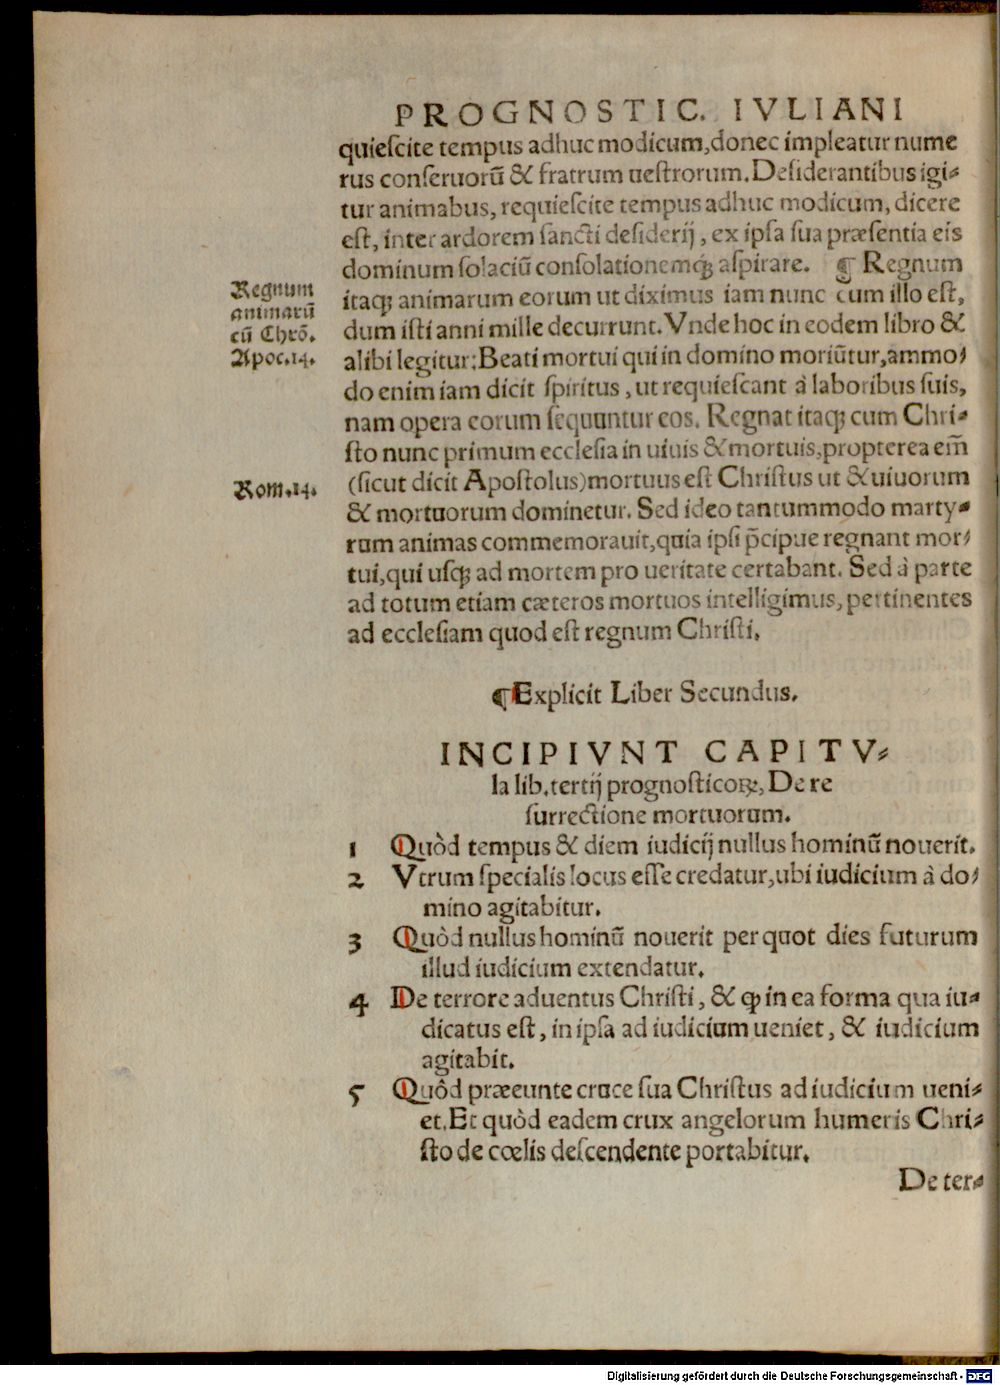 PROGNOSTIC. IVLIANI
quieſcite tempus adhuc modicum,donec impleatur nume
rus conſeruorũ & fratrum ueſtrorum.Deſiderantibus igi⸗
tur animabus, requieſcite tempus adhuc modicum, dicere
eſt, inter ardorem ſancti deſiderij, ex ipſa ſua præſentia eis
dominum ſolaciũ conſolationemq́ꝫ aſpirare. ¶ Regnum
Regnum
animarũ
cũ Chrõ.
Apoc.14.
itaqꝫ animarum eorum ut diximus iam nunc cum illo eſt,
dum iſti anni mille decurrunt.Vnde hoc in eodem libro &
alibi legitur:Beati mortui qui in domino moriũtur,ammo⸗
do enim iam dicit ſpiritus, ut requieſcant à laboribus ſuis,
nam opera eorum ſequuntur eos. Regnat itaqꝫ cum Chri⸗
ſto nunc primum eccleſia in uiuis & mortuis,propterea em̃
Rom.14.
(ſicut dicit Apoſtolus)mortuus eſt Chriſtus ut & uiuorum
& mortuorum dominetur. Sed ideo tantummodo marty⸗
rum animas commemorauit,quia ipſi p̃cipue regnant mor⸗
tui,qui uſqꝫ ad mortem pro ueritate certabant. Sed à parte
ad totum etiam cæteros mortuos intelligimus, pertinentes
ad eccleſiam quod eſt regnum Chriſti.
¶Explicit Liber Secundus.
INCIPIVNT CAPITV⸗
la lib.tertij prognoſticoꝝ, De re
ſurrectione mortuorum.
1 Quòd tempus & diem iudicij nullus hominũ nouerit.
2 Vtrum ſpecialis locus eſſe credatur,ubi iudicium à do⸗
mino agitabitur.
3 Quòd nullus hominũ nouerit per quot dies futurum
illud iudicium extendatur.
4 De terrore aduentus Chriſti, & ꝙ in ea forma qua iu⸗
dicatus eſt, in ipſa ad iudicium ueniet, & iudicium
agitabit.
5 Quôd præeunte cruce ſua Chriſtus ad iudicium ueni⸗
et.Et quòd eadem crux angelorum humeris Chri⸗
ſto de cœlis deſcendente portabitur.
De ter⸗
Digitalisierung gefördert durch die Deutsche Forschungsgemeinschaft - DFG